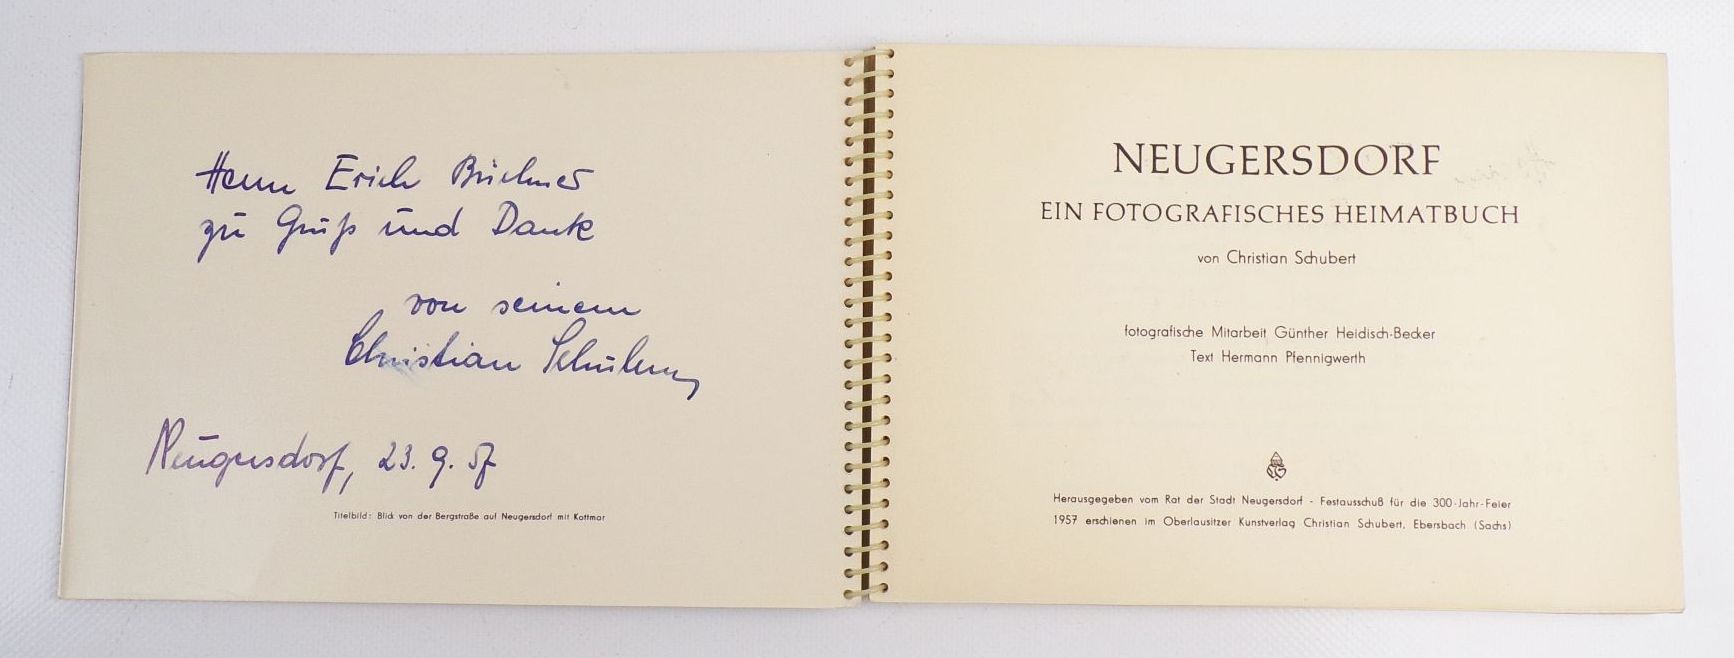 Herrn Erich Büchner
zu Gruß und Dank
von seinem
Christian Schubert
Neugersdorf, 23. 9. 57
Titelbild: Blick von der Bergstraße auf Neugersdorf mit Kottmar
NEUGERSDORF
EIN FOTOGRAFISCHES HEIMATBUCH
von Christian Schubert
fotografische Mitarbeit Günther Heidisch-Becker
Text Hermann Pfennigwerth
Herausgegeben vom Rat der Stadt Neugersdorf - Festausschuß für die 300-Jahr-Feier
1957 erschienen im Oberlausitzer Kunstverlag Christian Schubert, Ebersbach (Sachs)